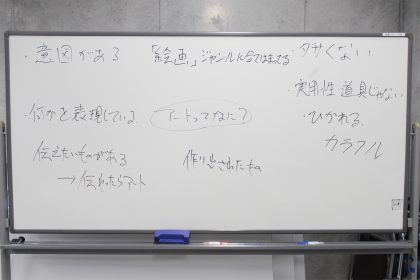 ・意図がある
「絵画」ジャンルに合てはまってる
・ダサくない
・実用性 道具じゃない
・何かを表現している
アートってなに?
・ひかれる
カラフル
伝えたいものがある
→伝わったらアート
作り出されたもの